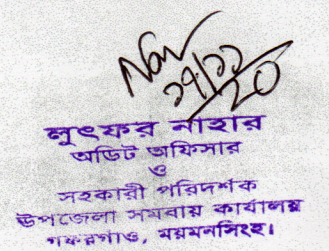 ১৭/১১/২০
লুৎফর নাহার
অডিট অফিসার
ও
সহকারী পরিদর্শক
উপজেলা সমবায় কার্যালয়
গফরগাঁও, ময়মনসিংহ।